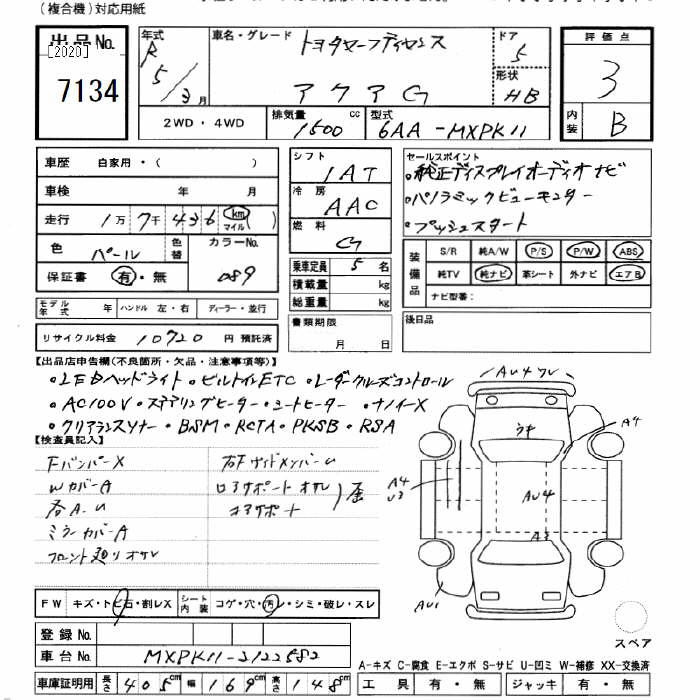 (複合機)対応用紙
出品No.
[2020]
7134
年式 R 5/3月
車名・グレード トヨタモーフティセンス
アクアG
ドア 5
形状 HB
評価点 3
内装 B
2WD・4WD
排気量 1500 cc
型式 6AA-MXPK11
車歴 自家用・( )
車検 年 月
走行 1万7千436 km マイル( )
色 パール 色替 カラーNo. 089
保証書 有・無
シフト 1AT
冷房 AAC
燃料 G
乗車定員 5名
積載量 kg
総重量 kg
セールスポイント
・純正ディスプレイオーディオナビ
・パノラミックビューモニター
・プッシュスタート
装備品 S/R 純A/W P/S P/W ABS
純TV 純ナビ 革シート 外ナビ エアB
ナビ型番:
モデル年式 年 ハンドル 左・右 ディーラー・並行
書類期限 月 日
後日品
リサイクル料金 10720 円 預託済
【出品店申告欄(不良箇所・欠品・注意事項等)】
・LEDヘッドライト・ビルトインETC・レーダークルーズコントロール
・AC100V・ステアリングヒーター・シートヒーター・ナノイーX
・クリアランスソナー・BSM・RCTA・PKSB・RSA
【検査員記入】
Fバンパー X
Wカバー A
各A-U
ミラーカバー A
フロント廻りオサレ
右FサイドメンバーU
ロアサポートオサレ
コアサポート
歪
AU4 ワレ
A4
ワキ
A4
U3
AU4
A3
AU1
FW キズ・トビ石・割レX
シート内装 コゲ・穴・汚レ・シミ・破レ・スレ
登録No.
車台No. MXPK11-3122582
スペア
A-キズ C-腐食 E-エクボ S-サビ U-凹ミ W-補修 XX-交換済
車庫証明用 長さ 405cm 幅 169cm 高さ 148cm
工具 有・無 ジャッキ 有・無